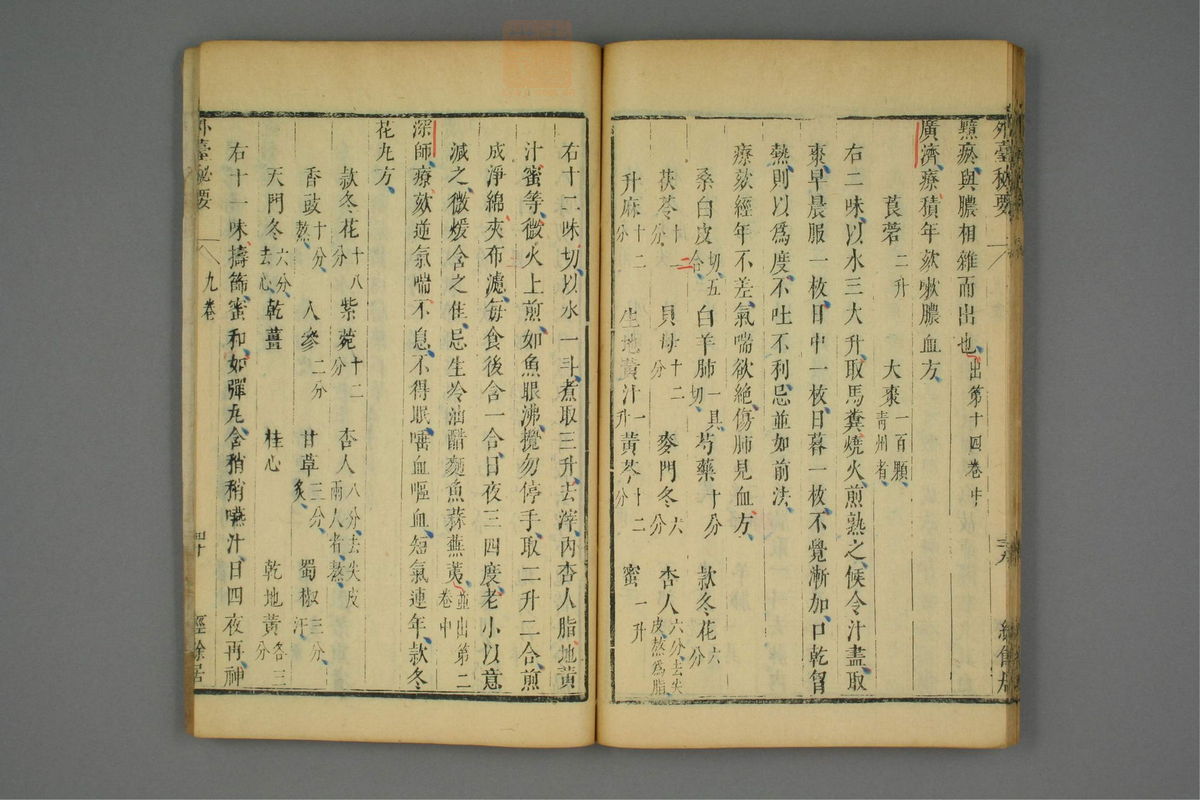 外臺祕要
黳瘀與膿相雜而出也出第十四卷中
廣濟療積年欬嗽膿血方
莨菪二升　大棗一百顆青州者
右二味以水三大升取馬糞燒火煎熟之候令汁盡取
棗早晨服一枚日中一枚日暮一枚不覺漸加口乾胷
熱則以爲度不吐不利忌並如前法
療欬經年不差氣喘欲絕傷肺見血方
桑白皮切五合　白羊肺一具切　芍藥十分　款冬花六分
茯苓十一分　貝母十二分　麥門冬六分　杏人六分去尖皮熬爲脂
升麻十二分　生地黃汁一升　黃芩十二分　蜜一升
右十二味切以水一斗煮取三升去滓內杏人脂地黃
汁蜜等微火上煎如魚眼沸攪勿停手取二升二合煎
成淨綿夾布濾每食後含一合日夜三四度老小以意
減之微煖含之佳忌生冷油醋麪魚蒜蕪荑並出第二卷中
深師療欬逆氣喘不息不得眠唾血嘔血短氣連年款冬
花丸方
款冬花十八分　紫菀十二分　杏人八分去尖皮兩人者熬
香豉十分熬　人參二分　甘草三分炙　蜀椒三分汗
天門冬六分去心　乾薑　桂心　乾地黃各三分
右十一味擣篩蜜和如彈丸含稍稍嚥汁日四夜再神
外臺祕要　九卷　四十　經餘居